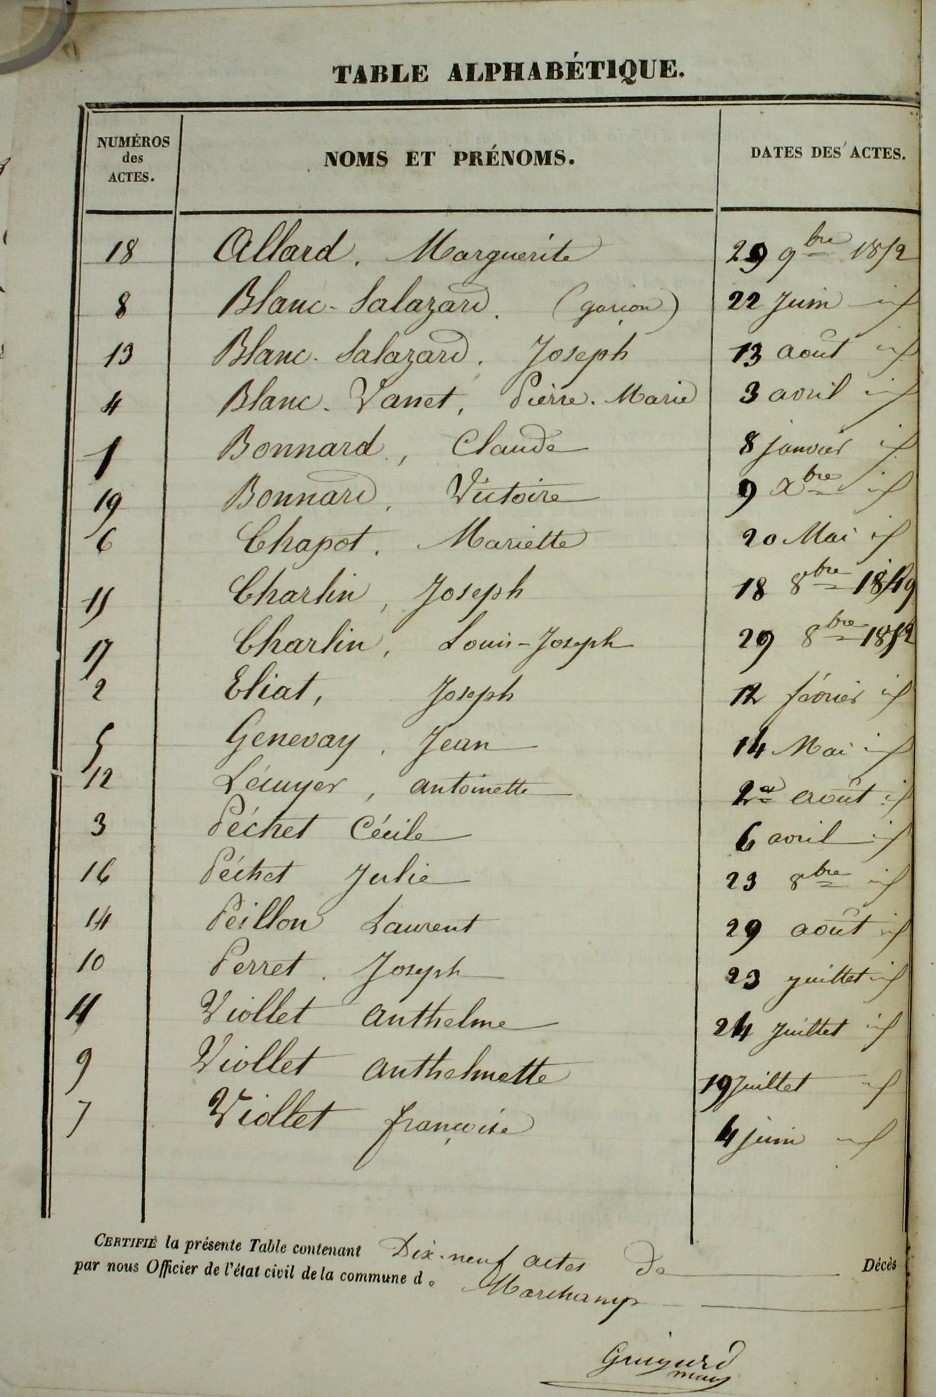 TABLE ALPHABÉTIQUE.
NUMÉROS des ACTES. NOMS ET PRÉNOMS. DATES DES ACTES.
18 Allard. Marguerite 29 9bre 1852
8 Blanc-Salazard. (garçon) 22 Juin id
13 Blanc-Salazard. Joseph 13 août id
4 Blanc-Vanet, Pierre-Marie 3 avril id
1 Bonnard, Claude 8 janvier id
19 Bonnard, Victoire 9 Xbre id
6 Chapot. Mariette 20 Mai id
15 Charlin, Joseph 18 8bre 1849
17 Charlin, Louis-Joseph 29 8bre 1852
2 Eliat, Joseph 12 février id
5 Genevay. Jean 14 Mai id
12 Lécuyer, antoinette août id
3 Péchet Cécile 6 avril id
16 Péchet Julie 23 8bre id
14 Peillon Laurent 29 août id
10 Perret. Joseph 23 juillet id
11 Viollet anthelme 24 Juillet id
9 Viollet anthelmette 19 Juillet id
7 Viollet françoise 4 juin id
CERTIFIÉ la présente Table contenant Dix-neuf actes de Décès
par nous Officier de l'état civil de la commune de Marchamp